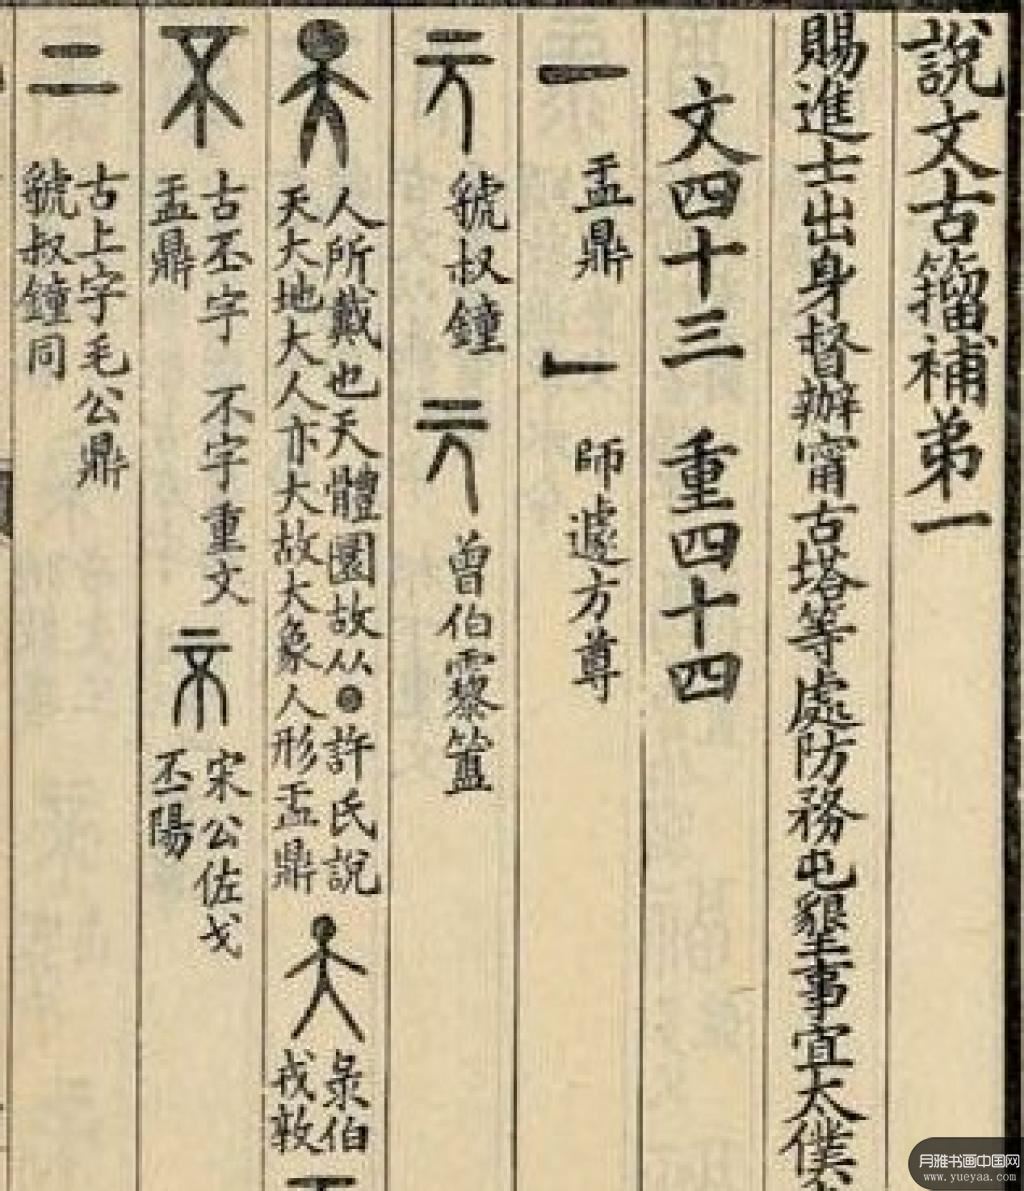 說文古籀補弟一
賜進士出身督辦甯古塔等處防務屯墾事宜太僕
文四十三 重四十四
一 盂鼎 一 師遽方尊
元 虢叔鐘 元 曾伯霥簠
天 人所戴也天體圜故从●許氏說
天大地大人亦大故大象人形盂鼎 天 彔伯
戎敦
不 古丕字 不字重文
盂鼎 丕 宋公佐戈
丕陽
二 古上字毛公鼎
虢叔鐘同
月雅书画中国网
www.yueyaa.com